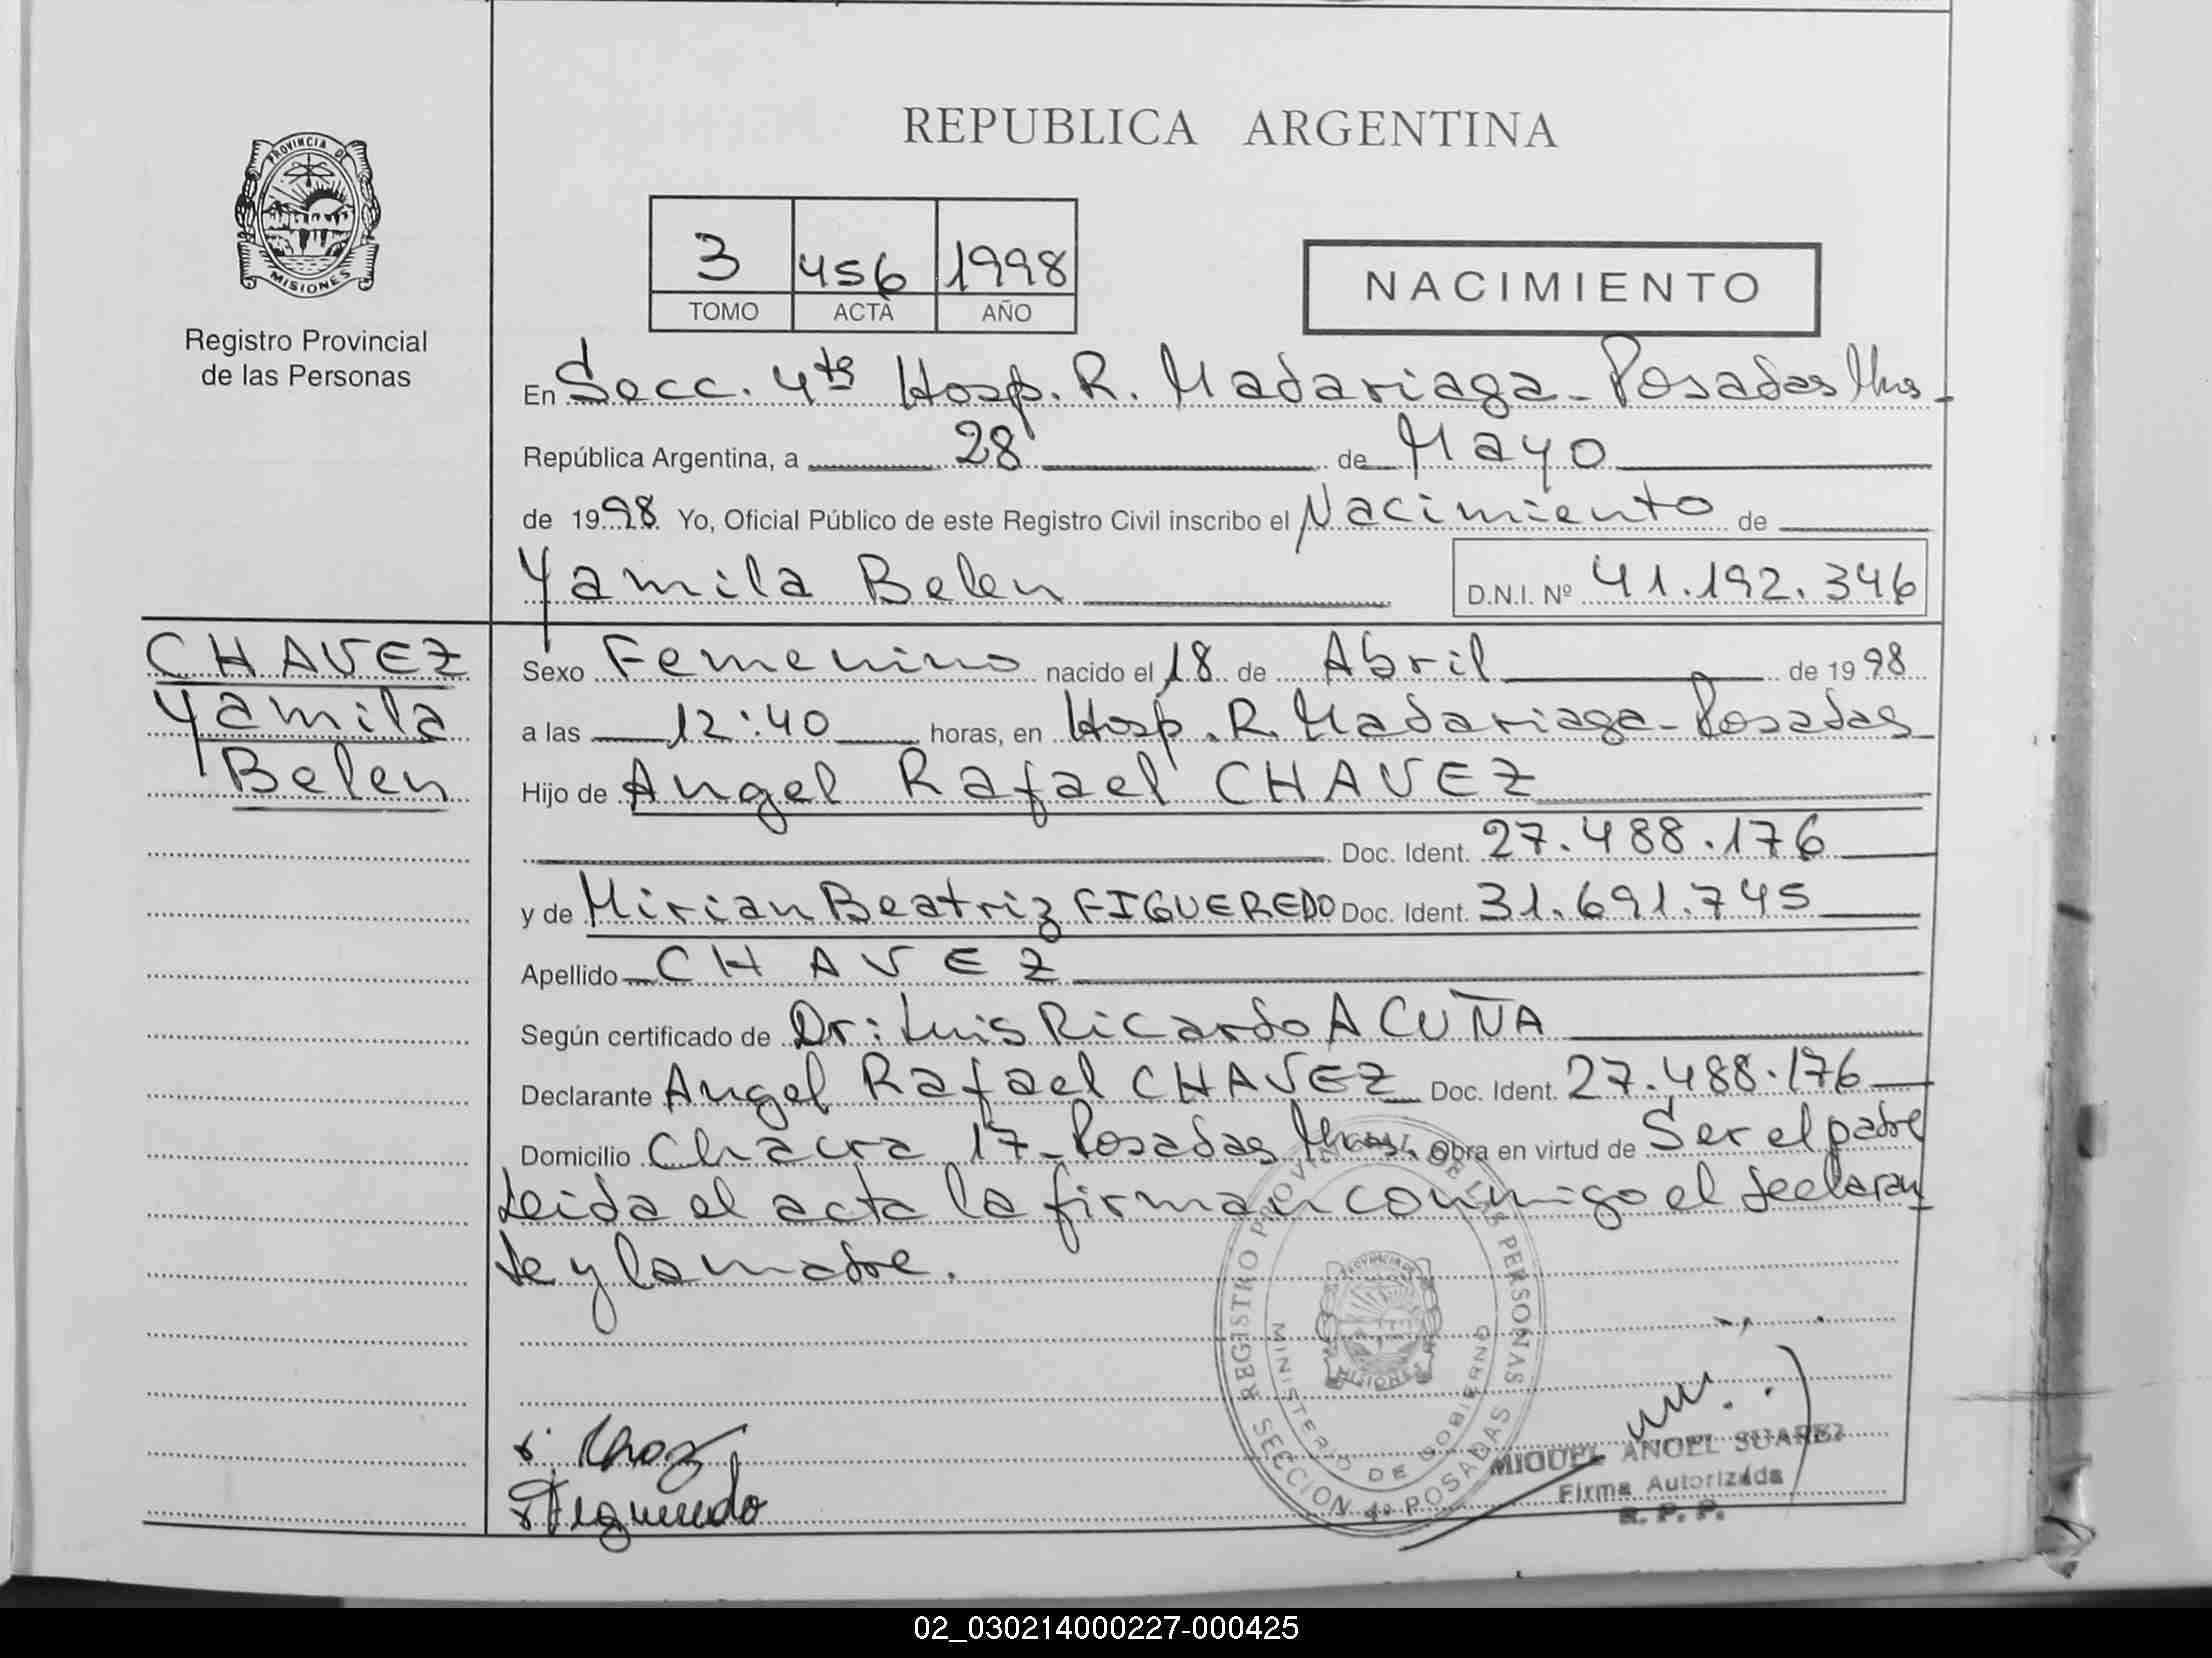 REPUBLICA ARGENTINA
PROVINCIA DE
MISIONES
Registro Provincial
de las Personas
3 456 1998
TOMO ACTA AÑO
NACIMIENTO
En Secc. 4ta Hosp. R. Madariaga - Posadas Mns -
República Argentina, a 28 de Mayo
de 1998 Yo, Oficial Público de este Registro Civil inscribo el Nacimiento de
Yamila Belen D.N.I. Nº 41.192.346
CHAVEZ
Yamila
Belen
Sexo Femenino nacido el 18 de Abril de 1998
a las 12:40 horas, en Hosp. R. Madariaga - Posadas
Hijo de Angel Rafael CHAVEZ
Doc. Ident. 27.488.176
y de Mirian Beatriz FIGUEREDO Doc. Ident. 31.691.745
Apellido CHAVEZ
Según certificado de Dr: Luis Ricardo ACUÑA
Declarante Angel Rafael CHAVEZ Doc. Ident. 27.488.176
Domicilio Chacra 17 - Posadas Mns. Obra en virtud de Ser el padre
Leida el acta la firman conmigo el declaran
te y la madre.
REGISTRO PROVINCIAL DE LAS PERSONAS
MINISTERIO DE GOBIERNO
MISIONES
SECCION 4º POSADAS
Figueredo
MIGUEL ANGEL SUAREZ
Firma Autorizada
R. P. P.
02_030214000227-000425